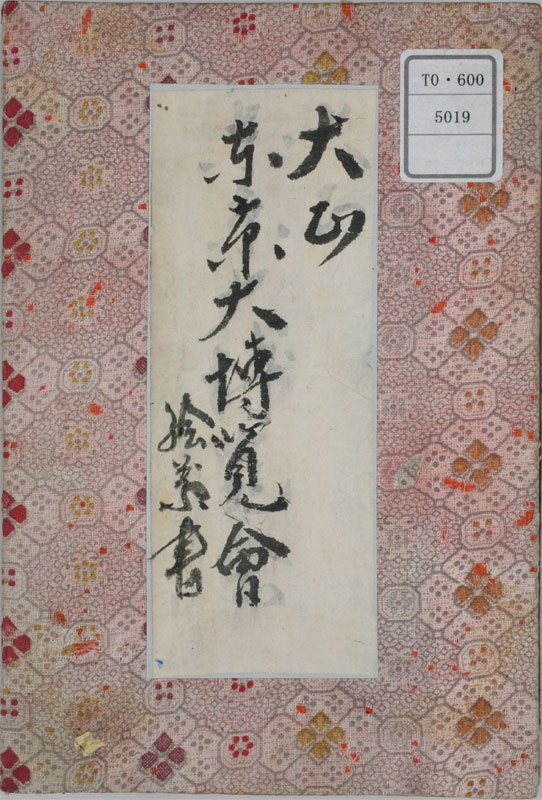 大正
東京大博覧會
絵葉書
TO・600
5019